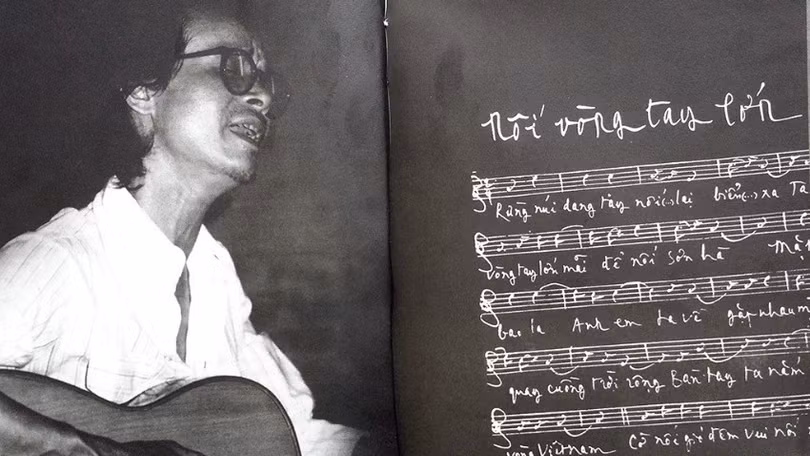 nối vòng tay lớn
Rừng núi dang tay nối(..)lại biển(..) xa Ta
vòng tay lớn mãi để nối sơn hà Mặ
bao la Anh em ta về gặp nhau m
quay cuồng trời rộng Bàn tay ta nắm
vòng Việt Nam Cờ nối gió đêm vui nối